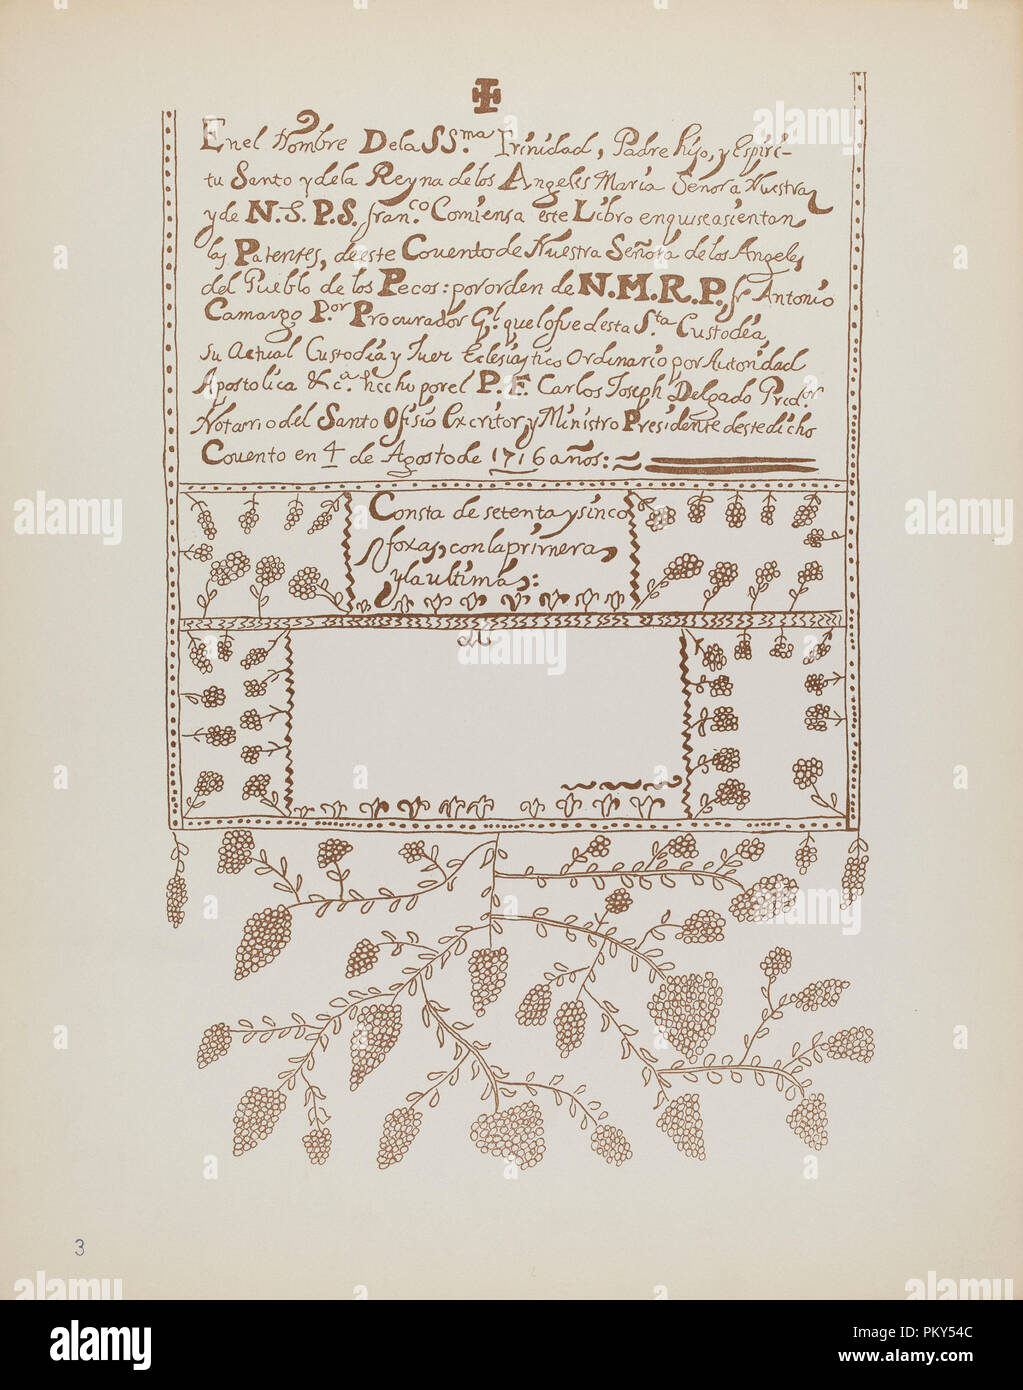 En el Nombre De la SS.ma Trinidad, Padre hijo, y Espiri-
tu Santo y de la Reyna de los Angeles Maria Señora Nuestra
y de N.S.P.S. fran.co Comiensa este Libro en quise asientan
las Patentes, de este Covento de Nuestra Señora de los Angeles
del Pueblo de los Pecos: por orden de N.M.R.P. fr Antonio
Camargo P.or Procurador G.l que lo fue de sta S.ta Custodia,
su Actual Custodia y Juez Eclesiastico Ordinario por Autoridad
Apostolica &c.a hecho por el P.F. Carlos Joseph Delgado Pred.or
Notario del Santo Ofisio Escritor, y Ministro Presidente de ste dicho
Covento en 4 de Agosto de 1716 años:
Consta de setenta y sinco
foxas, con la primera
y la ultima:
3
alamy
Image ID: PKY54C
www.alamy.com